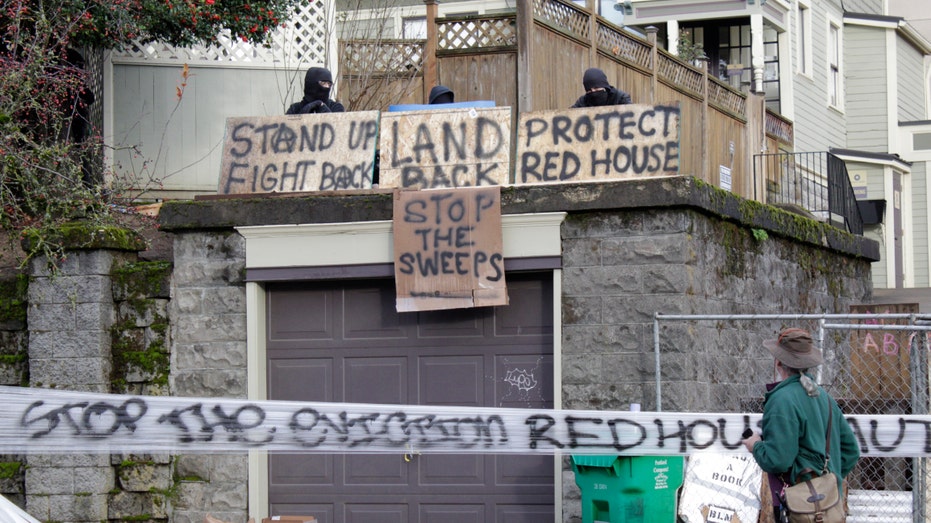 STAND UP
FIGHT BACK
LAND
BACK
PROTECT
RED HOUSE
STOP
THE
SWEEPS
STOP THE EVICTION RED HOUSE MUT
A BOOK
BLM
AB